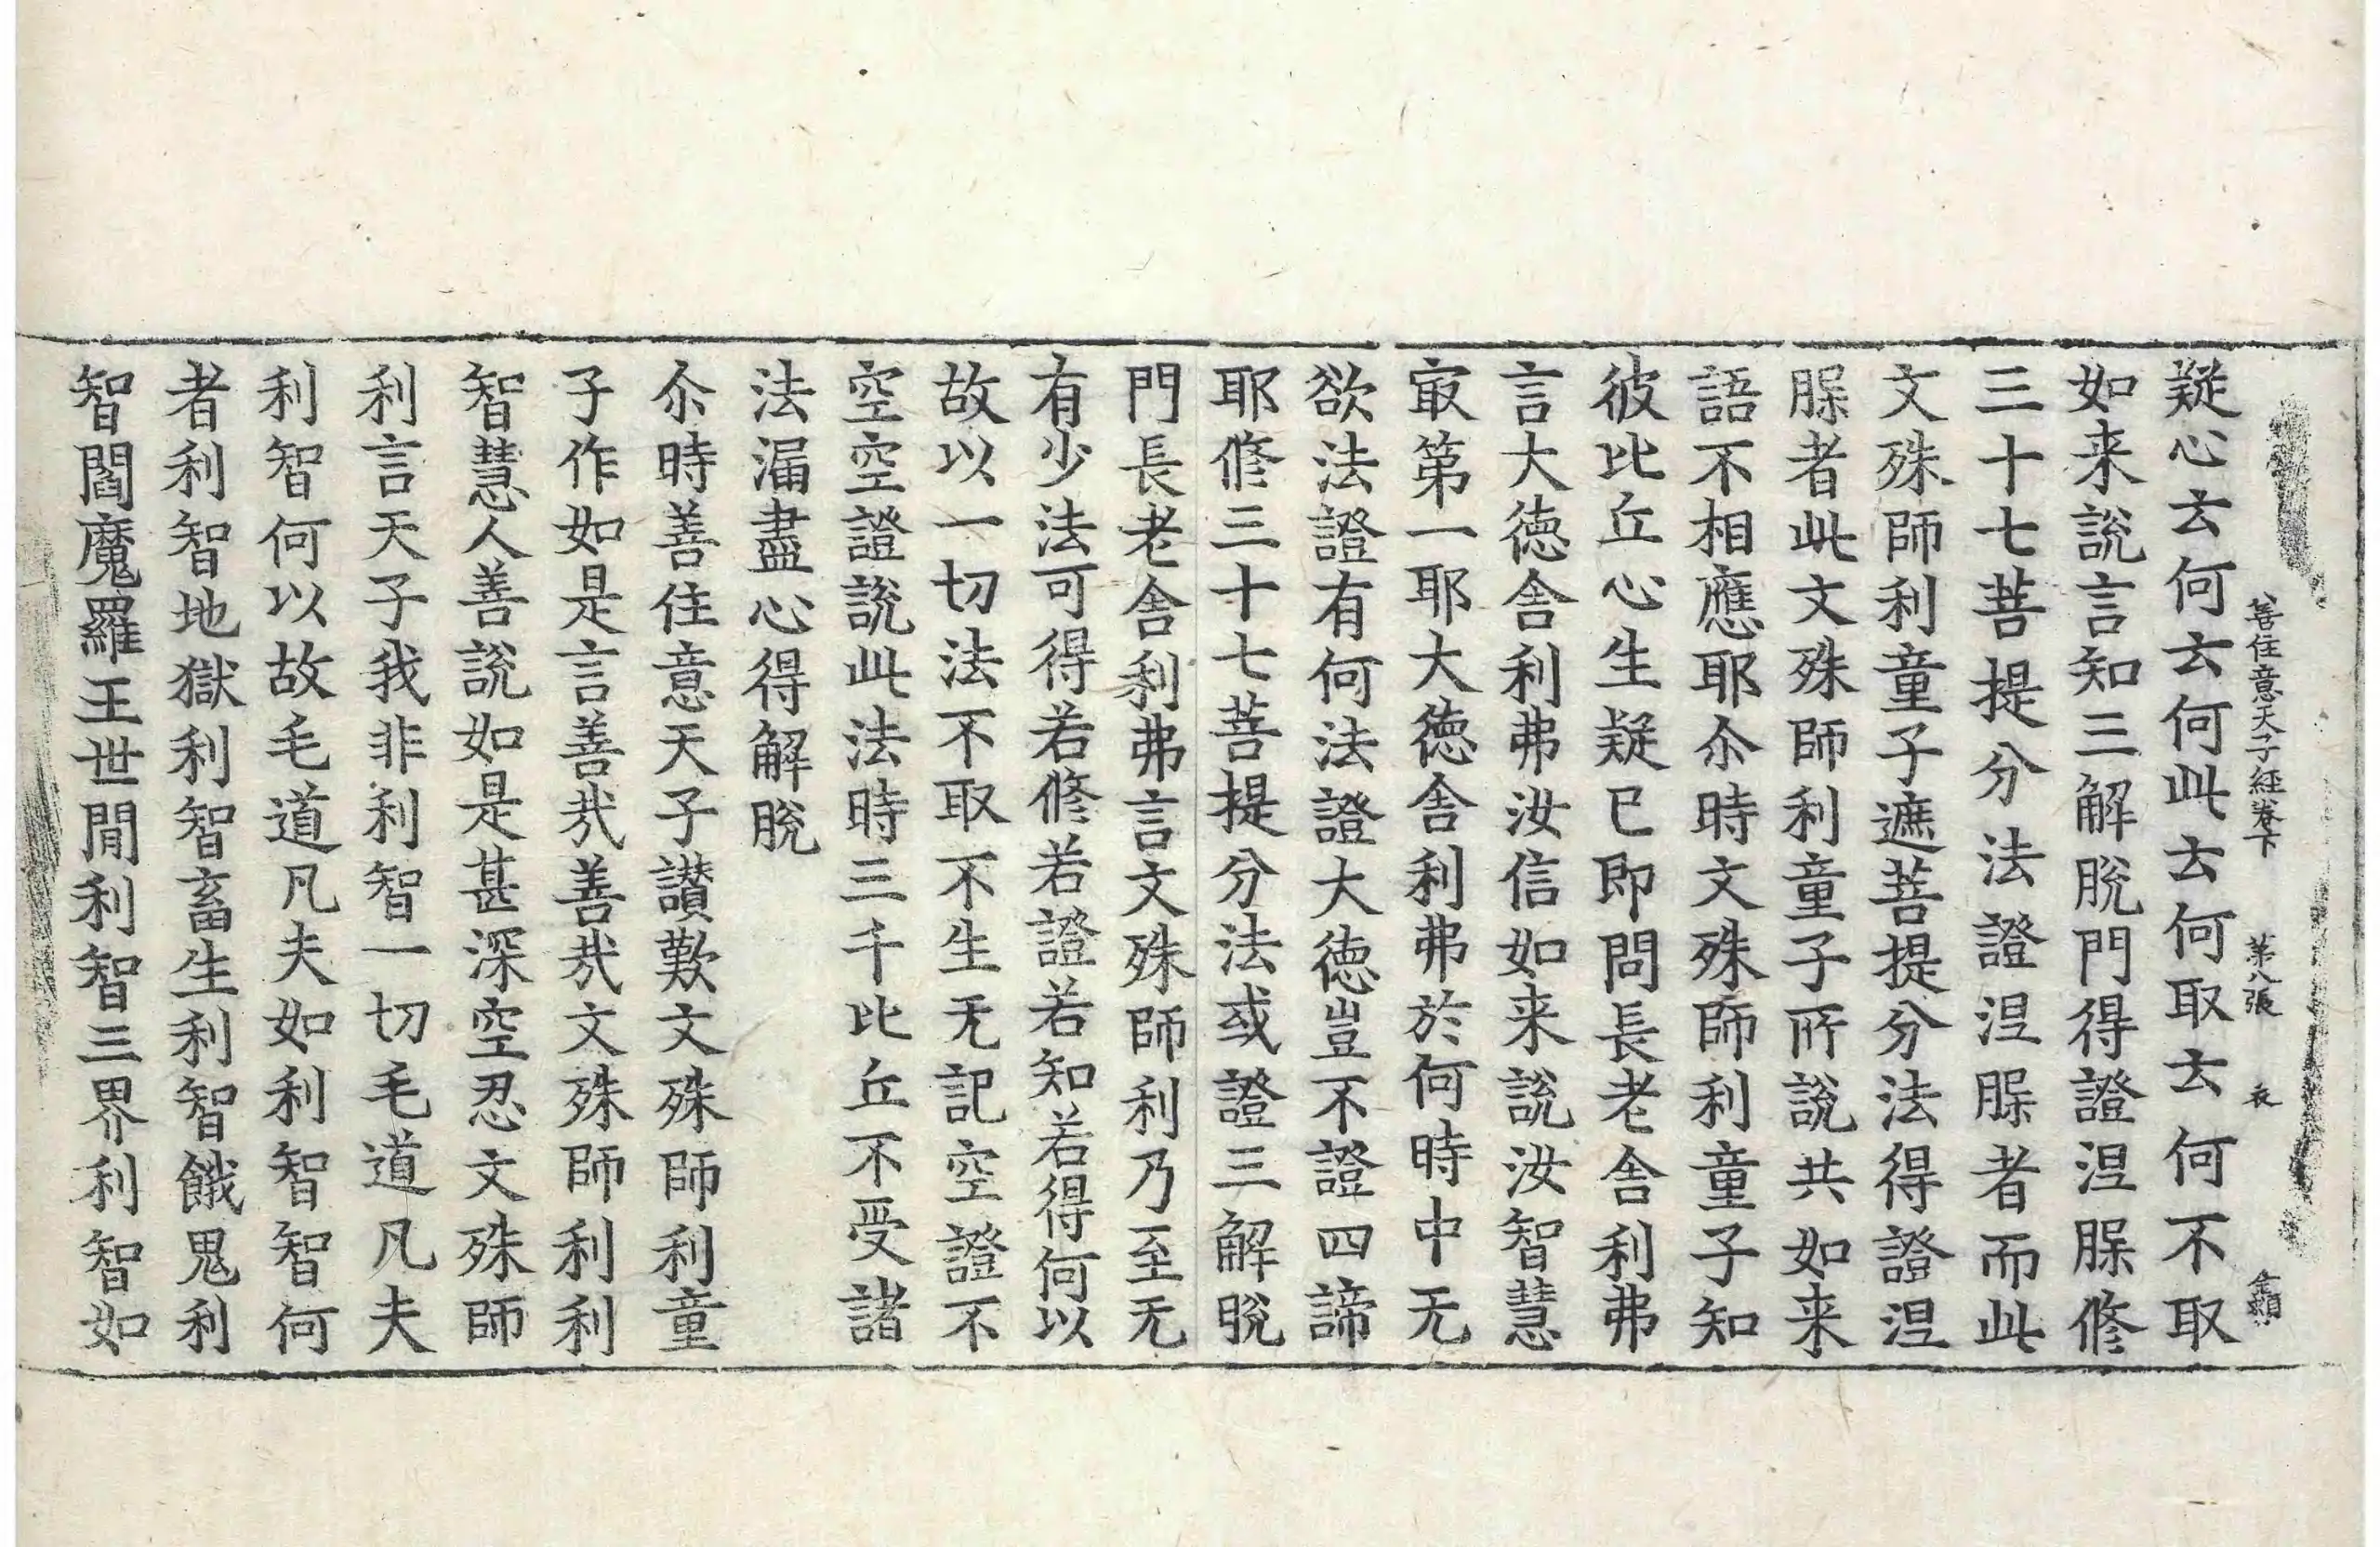 善住意天子經卷下　第八張　夜
疑心去何去何此去何取去何不取
如来說言知三解脫門得證涅𦙾修
三十七菩提分法證涅𦙾者而此
文殊師利童子遮菩提分法得證涅
𦙾者此文殊師利童子所說共如来
語不相應耶尒時文殊師利童子知
彼比丘心生疑已即問長老舍利弗
言大德舍利弗汝信如来說汝智慧
㝡第一耶大德舍利弗於何時中无
欲法證有何法證大德豈不證四諦
耶修三十七菩提分法或證三解脫
門長老舍利弗言文殊師利乃至无
有少法可得若修若證若知若得何以
故以一切法不取不生无記空證不
空空證說此法時三千比丘不受諸
法漏盡心得解脫
尒時善住意天子讃歎文殊師利童
子作如是言善㢤善㢤文殊師利利
智慧人善說如是甚深空忍文殊師
利言天子我非利智一切毛道凡夫
利智何以故毛道凡夫如利智智何
者利智地獄利智畜生利智餓鬼利
智閻魔羅王世間利智三界利智如